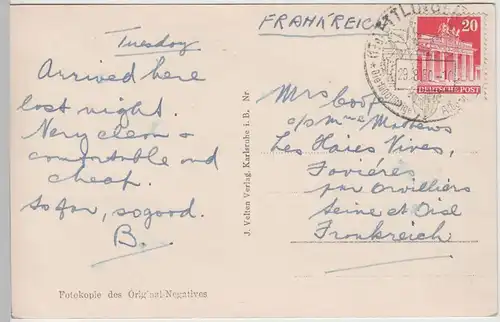 FRANKREICH
ETTLINGEN
20
DEUTSCHE POST
Tuesday
Arrived here
last night.
Very clean &
comfortable and
cheap.
So far, so good.
B.
Mrs Goof
c/o Mme Mathews
Les Haies Vives,
Favières
par Orvilliers
Seine et Oise
Frankreich
J. Velten Verlag, Karlsruhe i. B. Nr
Fotokopie des Original-Negatives